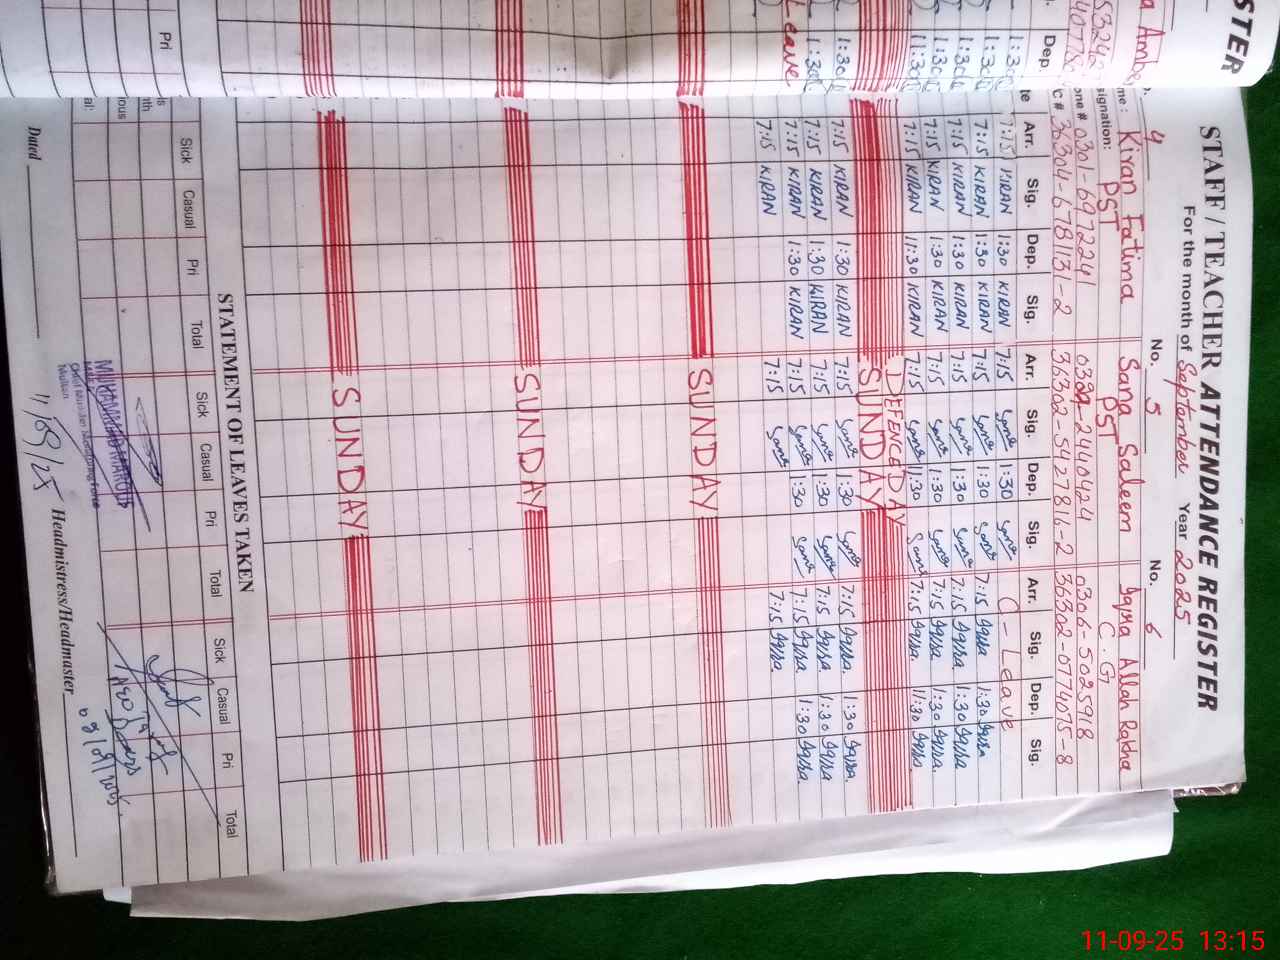 STER
STAFF / TEACHER ATTENDANCE REGISTER
For the month of September Year 2025
No. 5 No. 6
4
me: Kiran Fatima Sana Saleem Iqra Allah Rakha
signation: PST PST C.G
one # 0301-6972241 0322-2440424 0306-5025918
36304-6781131-2 36302-5427816-2 36302-0774075-8
Dep. Arr. Sig. Dep. Sig. Arr. Sig. Dep. Sig. Arr. Sig. Dep. Sig.
1:30 7:15 KIRAN 1:30 KIRAN 7:15 Sana 1:30 Sana C-Leave
1:30 7:15 KIRAN 1:30 KIRAN 7:15 Sana 1:30 Sana 7:15 Iqra 1:30 Iqra
1:30 7:15 KIRAN 1:30 KIRAN 7:15 Sana 1:30 Sana 7:15 Iqra. 1:30 Iqra.
1:30 7:15 KIRAN 1:30 KIRAN 7:15 Sana 1:30 Sana 7:15 Iqra. 1:30 Iqra.
11:30 7:15 KIRAN 11:30 KIRAN 7:15 Sana 11:30 Sana 7:15 Iqra. 11:30 Iqra.
DEFENCE DAY
SUNDAY
1:30 7:15 KIRAN 1:30 KIRAN 7:15 Sana 1:30 Sana 7:15 Iqra. 1:30 Iqra.
1:30 7:15 KIRAN 1:30 KIRAN 7:15 Sana 1:30 Sana 7:15 Iqra. 1:30 Iqra
Leave 7:15 KIRAN 1:30 KIRAN 7:15 Sana 1:30 Sana 7:15 Iqra. 1:30 Iqra.
7:15 KIRAN 7:15 Sana 7:15 Iqra.
SUNDAY
SUNDAY
SUNDAY
STATEMENT OF LEAVES TAKEN
Pri Sick Casual Pri Total Sick Casual Pri Total Sick Casual Pri Total
MUHAMMAD MAROOF
Multan
Dated 11/09/25 Headmistress/Headmaster
11-09-25 13:15